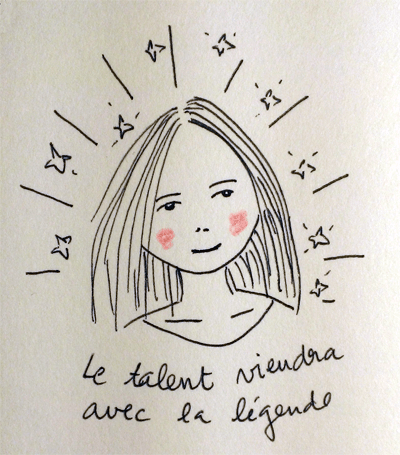 Le talent viendra
avec la légende